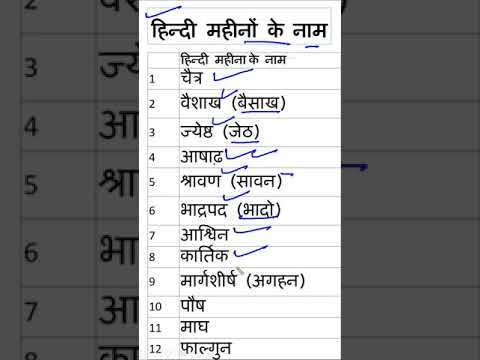 हिन्दी महीनों के नाम
हिन्दी महीना के नाम
1 चैत्र
2 वैशाख (बैसाख)
3 ज्येष्ठ (जेठ)
4 आषाढ़
5 श्रावण (सावन)
6 भाद्रपद (भादो)
7 आश्विन
8 कार्तिक
9 मार्गशीर्ष (अगहन)
10 पौष
11 माघ
12 फाल्गुन